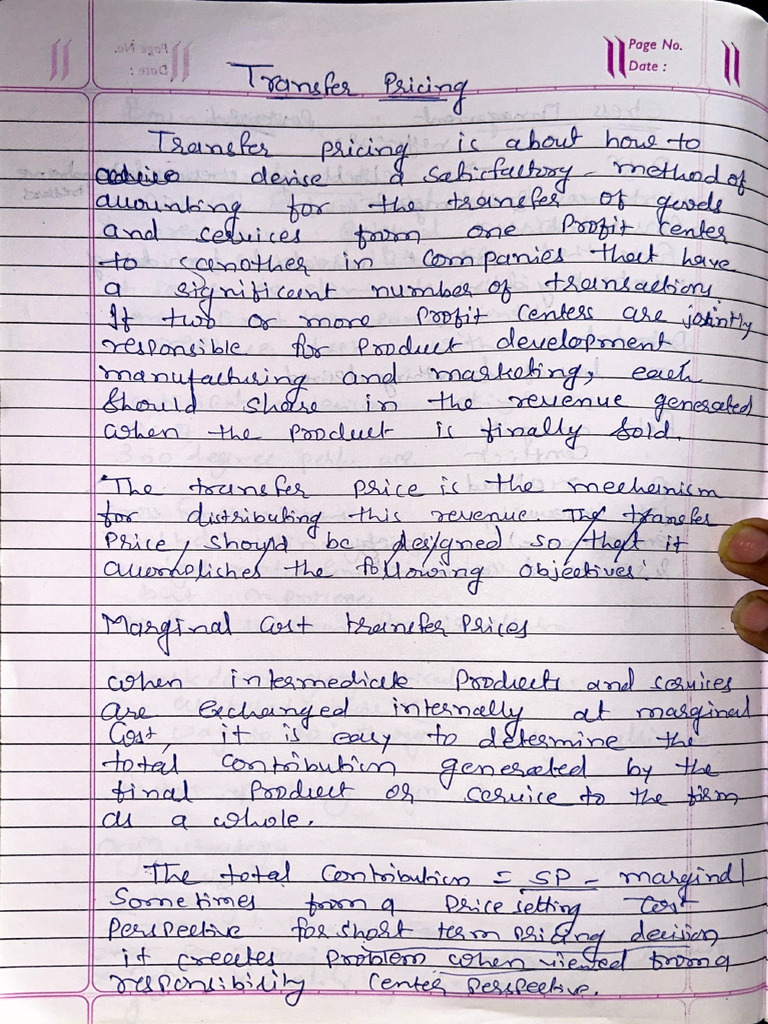 Page No.
Date :
Transfer Pricing
Transfer pricing is about how to
devise a satisfactory method of
accounting for the transfer of goods
and services from one Profit center
to another in companies that have
a significant number of transactions.
If two or more profit centers are jointly
responsible for product development
manufacturing and marketing, each
should share in the revenue generated
when the product is finally sold.
The transfer price is the mechanism
for distributing this revenue. The transfer
price, should be designed so that it
accomplishes the following objectives:
Marginal Cost transfer Prices
when intermediate Products and services
are exchanged internally at marginal
Cost, it is easy to determine the
total contribution generated by the
final Product or service to the firm
as a whole.
The total contribution = SP - marginal
Sometimes from a price setting Cost
perspective for short term pricing decision
it creates problem when viewed from a
responsibility center perspective.